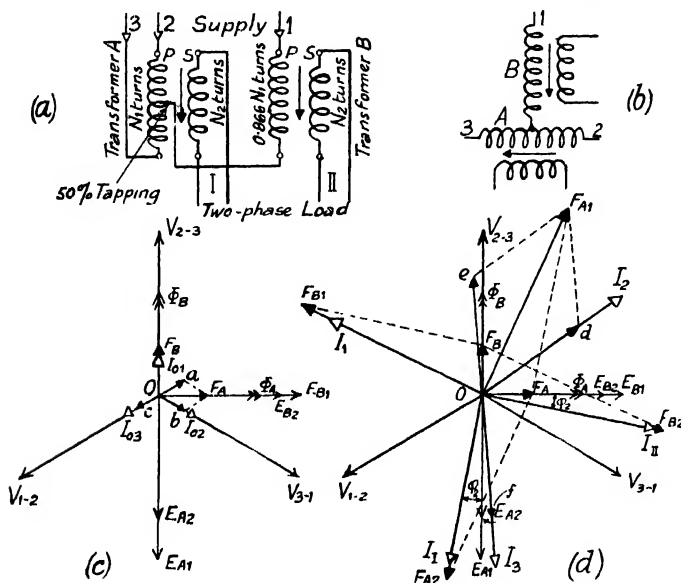 3 2 Supply 1
Transformer A
N₁ turns
P
S
N₂ turns
0.866 N₁ turns
P
S
N₂ turns
Transformer B
(a)
50% Tapping
I
II
Two-phase Load
1
B
(b)
A
3
2
V₂₋₃
Φ_B
F_B
I₀₁
O
a
F_A
Φ_A
E_B2
F_B1
c
b
I₀₃
I₀₂
V₁₋₂
V₃₋₁
E_A2
E_A1
(c)
F_A1
V₂₋₃
e
Φ_B
I₂
F_B1
I₁
d
F_B
O
F_A
Φ_A
E_B2
E_B1
φ₂
F_B2
I_II
V₁₋₂
V₃₋₁
φ₂
f
E_A2
I_I
F_A2
E_A1
I₃
(d)